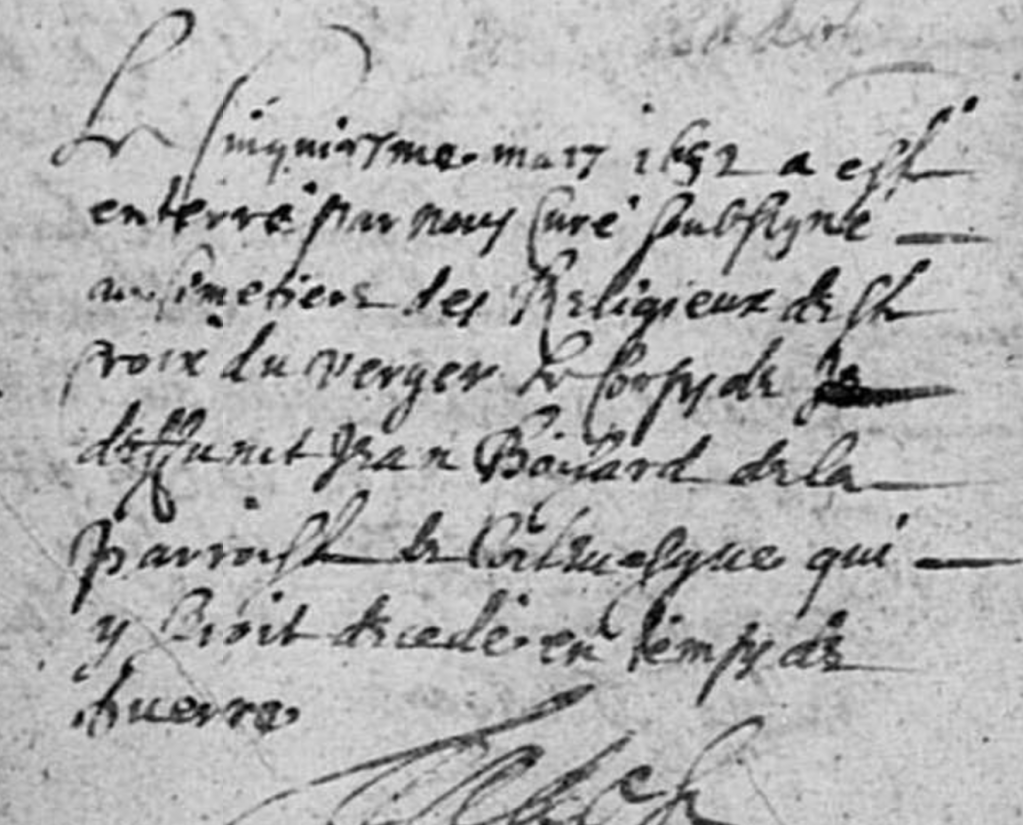 Le sinquiesme mars 1652 a esté
enterré par nous Curé soubsigné
au simetiere des Religieux de Ste
croix du verger le Corps de
deffunct Jean Boissard de la
parroisse de qui
y estoit decedé en temps de
Guerre